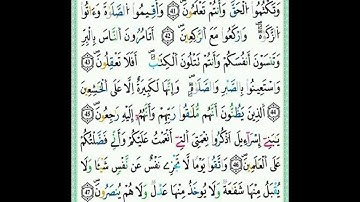 وَتَكْتُمُوا۟ اُلْحَقَّ وَأَنتُمْ تَعْلَمُونَ 41 وَأَقِيمُوا۟ اُلصَّلَوٰةَ وَءَاتُوا۟
اُلزَّكَوٰةَ وَارْكَعُوا۟ مَعَ اَلرَّٰكِعِينَ 42 أَتَامُرُونَ اَلنَّاسَ بِالْبِرِّ
وَتَنسَوْنَ أَنفُسَكُمْ وَأَنتُمْ تَتْلُونَ اَلْكِتَٰبَ أَفَلَا تَعْقِلُونَ 43
وَاسْتَعِينُوا۟ بِالصَّبْرِ وَالصَّلَوٰةِ وَإِنَّهَا لَكَبِيرَةٌ إِلَّا عَلَى اَلْخَٰشِعِينَ
44 اَلذِينَ يَظُنُّونَ أَنَّهُم مُّلَٰقُوا۟ رَبِّهِمْ وَأَنَّهُمُۥٓ إِلَيْهِ رَٰجِعُونَ 45
يَٰبَنِےٓ إِسْرَآءِيلَ اَذْكُرُوا۟ نِعْمَتِيَ اَلتِےٓ أَنْعَمْتُ عَلَيْكُمْ وَأَنِّے فَضَّلْتُكُمْ
عَلَى اَلْعَٰلَمِينَ 46 وَاتَّقُوا۟ يَوْماً لَّا تَجْزِے نَفْسٌ عَن نَّفْسٍ شَيْـٔاً وَلَا
يُقْبَلُ مِنْهَا شَفَٰعَةٌ وَلَا يُوخَذُ مِنْهَا عَدْلٌ وَلَا هُمْ يُنصَرُونَ 47